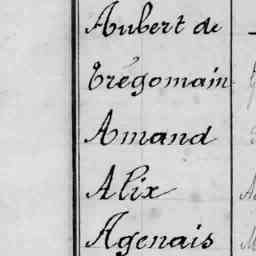 Aubert de
Trégomain
Amand
Alix
Agenais